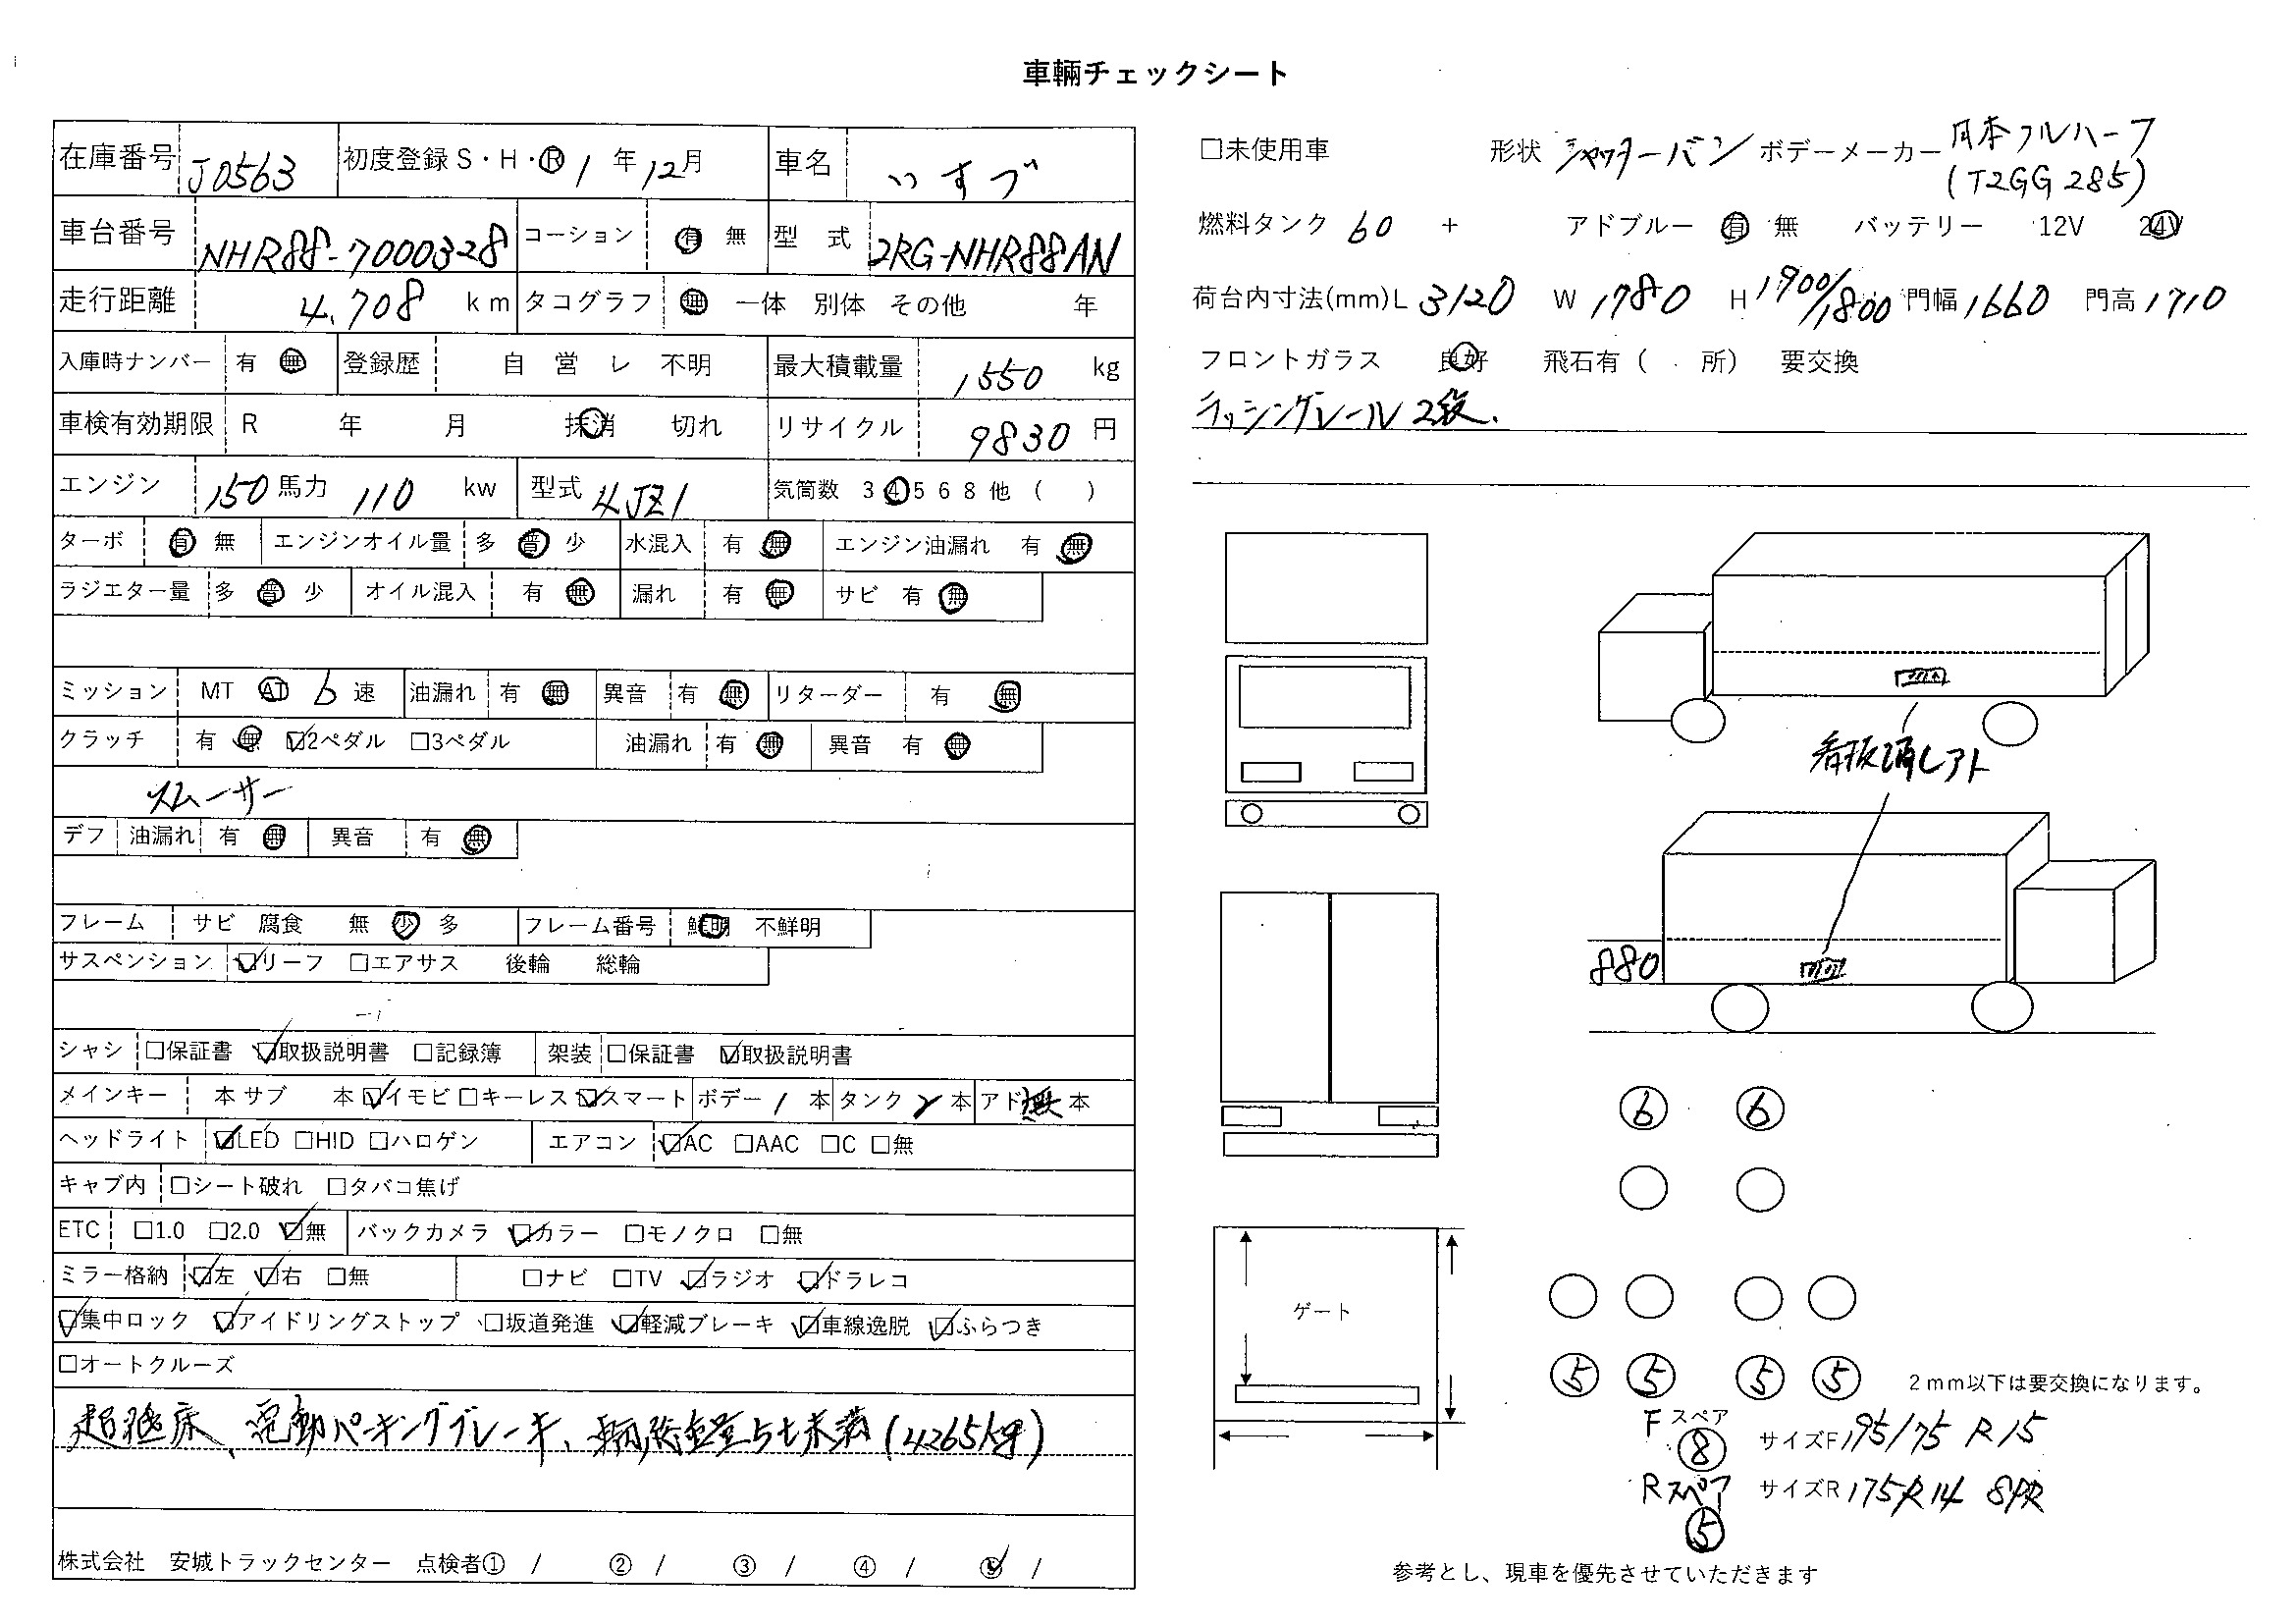 車輌チェックシート
在庫番号 J0563 初度登録 S・H・Ⓡ 1 年 12月 車名 いすゞ
車台番号 NHR88-7000328 コーション 有 無 型 式 2RG-NHR88AN
走行距離 4.708 km タコグラフ 無 一体 別体 その他 年
入庫時ナンバー 有 無 登録歴 自 営 レ 不明 最大積載量 1550 kg
車検有効期限 R 年 月 抹消 切れ リサイクル 9830 円
エンジン 150 馬力 110 kw 型式 4JZ1 気筒数 3 4 5 6 8 他 ( )
ターボ 有 無 エンジンオイル量 多 普 少 水混入 有 無 エンジン油漏れ 有 無
ラジエター量 多 普 少 オイル混入 有 無 漏れ 有 無 サビ 有 無
ミッション MT AT 6 速 油漏れ 有 無 異音 有 無 リターダー 有 無
クラッチ 有 無 ☑2ペダル □3ペダル 油漏れ 有 無 異音 有 無
スムーサー
デフ 油漏れ 有 無 異音 有 無
フレーム サビ 腐食 無 少 多 フレーム番号 鮮明 不鮮明
サスペンション ☑リーフ □エアサス 後輪 総輪
シャシ □保証書 ☑取扱説明書 □記録簿 架装 □保証書 ☑取扱説明書
メインキー 本 サブ 本 ☑イモビ □キーレス ☑スマート ボデー 1 本 タンク 2 本 アド 無 本
ヘッドライト ☑LED □HID □ハロゲン エアコン ☑AC □AAC □C □無
キャブ内 □シート破れ □タバコ焦げ
ETC □1.0 □2.0 ☑無 バックカメラ ☑カラー □モノクロ □無
ミラー格納 ☑左 ☑右 □無 □ナビ □TV ☑ラジオ ☑ドラレコ
☑集中ロック ☑アイドリングストップ □坂道発進 ☑軽減ブレーキ ☑車線逸脱 ☑ふらつき
□オートクルーズ
超低床、電動パーキングブレーキ、車輌総重量5t未満(4265kg)
株式会社 安城トラックセンター 点検者① / ② / ③ / ④ / ⑤ /
□未使用車 形状 シャッターバン ボデーメーカー 日本フルハーフ
(T2GG285)
燃料タンク 60 + アドブルー 有 無 バッテリー 12V 24V
荷台内寸法(mm) L 3120 W 1780 H 1900/1800 門幅 1660 門高 1710
フロントガラス 良好 飛石有 ( 所) 要交換
ラッシングレール2段.
看板消しアト
880
6 6
ゲート
5 5 5 5
2mm以下は要交換になります。
F スペア 8 サイズF 195/75 R15
R スペア 5 サイズR 175R14 8PR
参考とし、現車を優先させていただきます